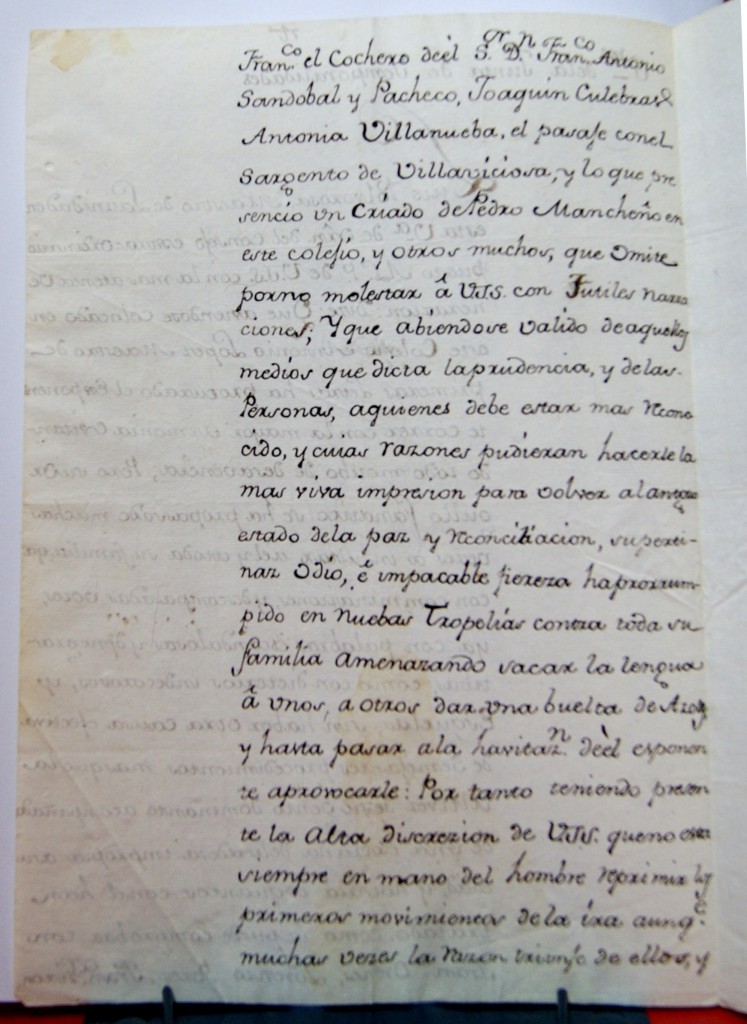 Fran.co el Cochero deèl S.or D.n Fran.co Antonio
Sandobal y Pacheco, Joaquin Culebras,
Antonia Villanueba, el pasaje conel
Sargento de Villaviciosa, y lo que pre
sencio un Criado de Pedro Mancheño en
este colesio, y otros muchos, que omite
porno molestar â VSS. con futiles narra
ciones; Y que abiendose valido de aquellos
medios que dicta la prudencia, y delas
Personas, aquienes debe estar mas recono
cido, y cuias razones pudieran hacerle la
mas viva impresion para volver al antiguo
estado dela paz y reconciliacion, su perti-
naz odio, ê impacable fiereza haprorrum-
pido en nuebas tropelias contra toda su
familia amenazando sacar la lengua
â unos, a otros dar una buelta de Azotes
y hasta pasar ala havitaz.n deèl esponen
te aprovocarle: Por tanto teniendo presen
te la alta discrezion de VSS. queno esta
siempre en mano del hombre reprimir los
primeros movimientos de la ira aunq.e
muchas vezes la razon triunfe de ellos, y